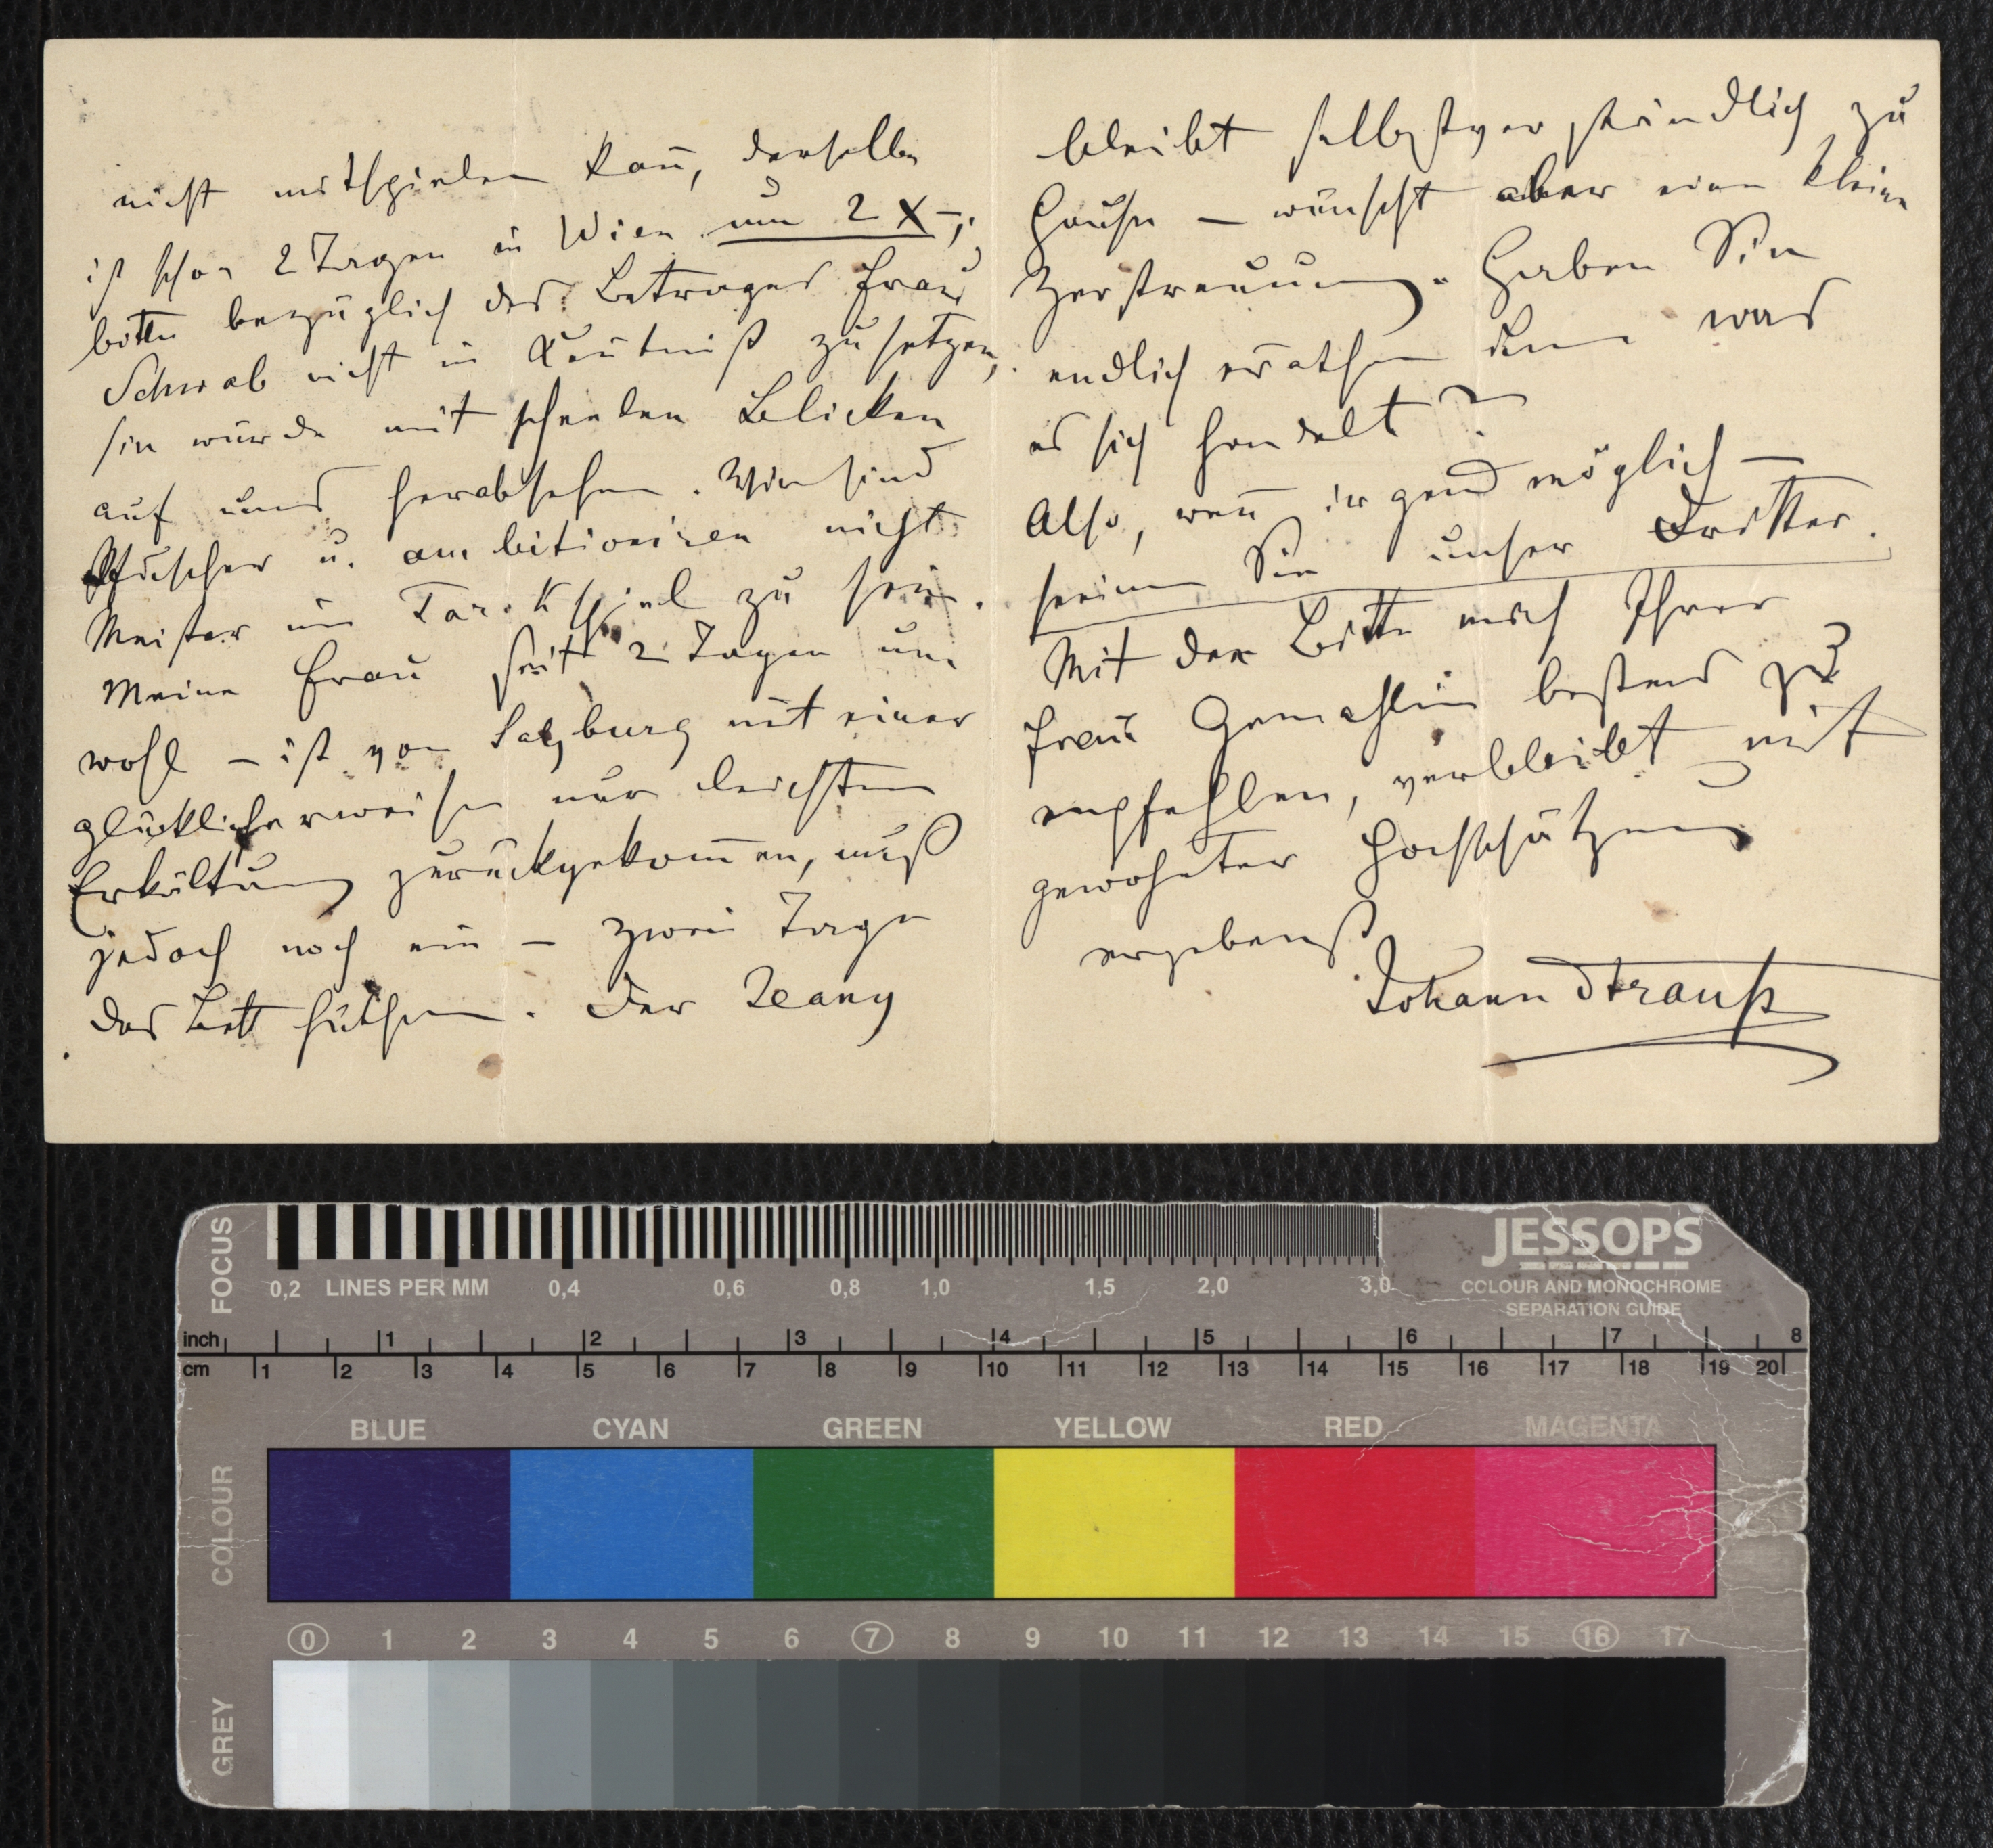 nicht mitspielen kan̄, derselbe
ist schon 2 Tagen in Wien um 2 X –,
bitte bezüglich des Betrages Frau
Schwab nicht in Ken̄tniß zu setzen,
sie würde mit scheelen Blicken
auf uns herabsehen. Wir sind
Pfuscher u. ambitioniren nicht
Meister im Tarokspiel zu sein.
Meine Frau seit 2 Tagen un-
wohl – ist von Salzburg mit einer
glücklicherweise nur leichten
Erkältung zurückgekom̄en, muß
jedoch noch ein – zwei Tage
das Bett hüthen. Der Jeany
bleibt selbstverständlich zu
Hause – wünscht aber eine kleine
Zerstreuung. Haben Sie
endlich errathen um was
es sich handelt?
Also, wen̄ irgend möglich –
seien Sie unser Dritter.
Mit der Bitte mich Ihrer
Frau Gemahlin bestens zu
empfehlen, verbleibt mit
gewohnter Hochschätzung
ergebenst
Johann Strauß
FOCUS
0,2 LINES PER MM 0,4 0,6 0,8 1,0 1,5 2,0 3,0
JESSOPS
COLOUR AND MONOCHROME
SEPARATION GUIDE
inch 1 2 3 4 5 6 7 8
cm 1 2 3 4 5 6 7 8 9 10 11 12 13 14 15 16 17 18 19 20
COLOUR
BLUE CYAN GREEN YELLOW RED MAGENTA
0 1 2 3 4 5 6 7 8 9 10 11 12 13 14 15 16 17
GREY